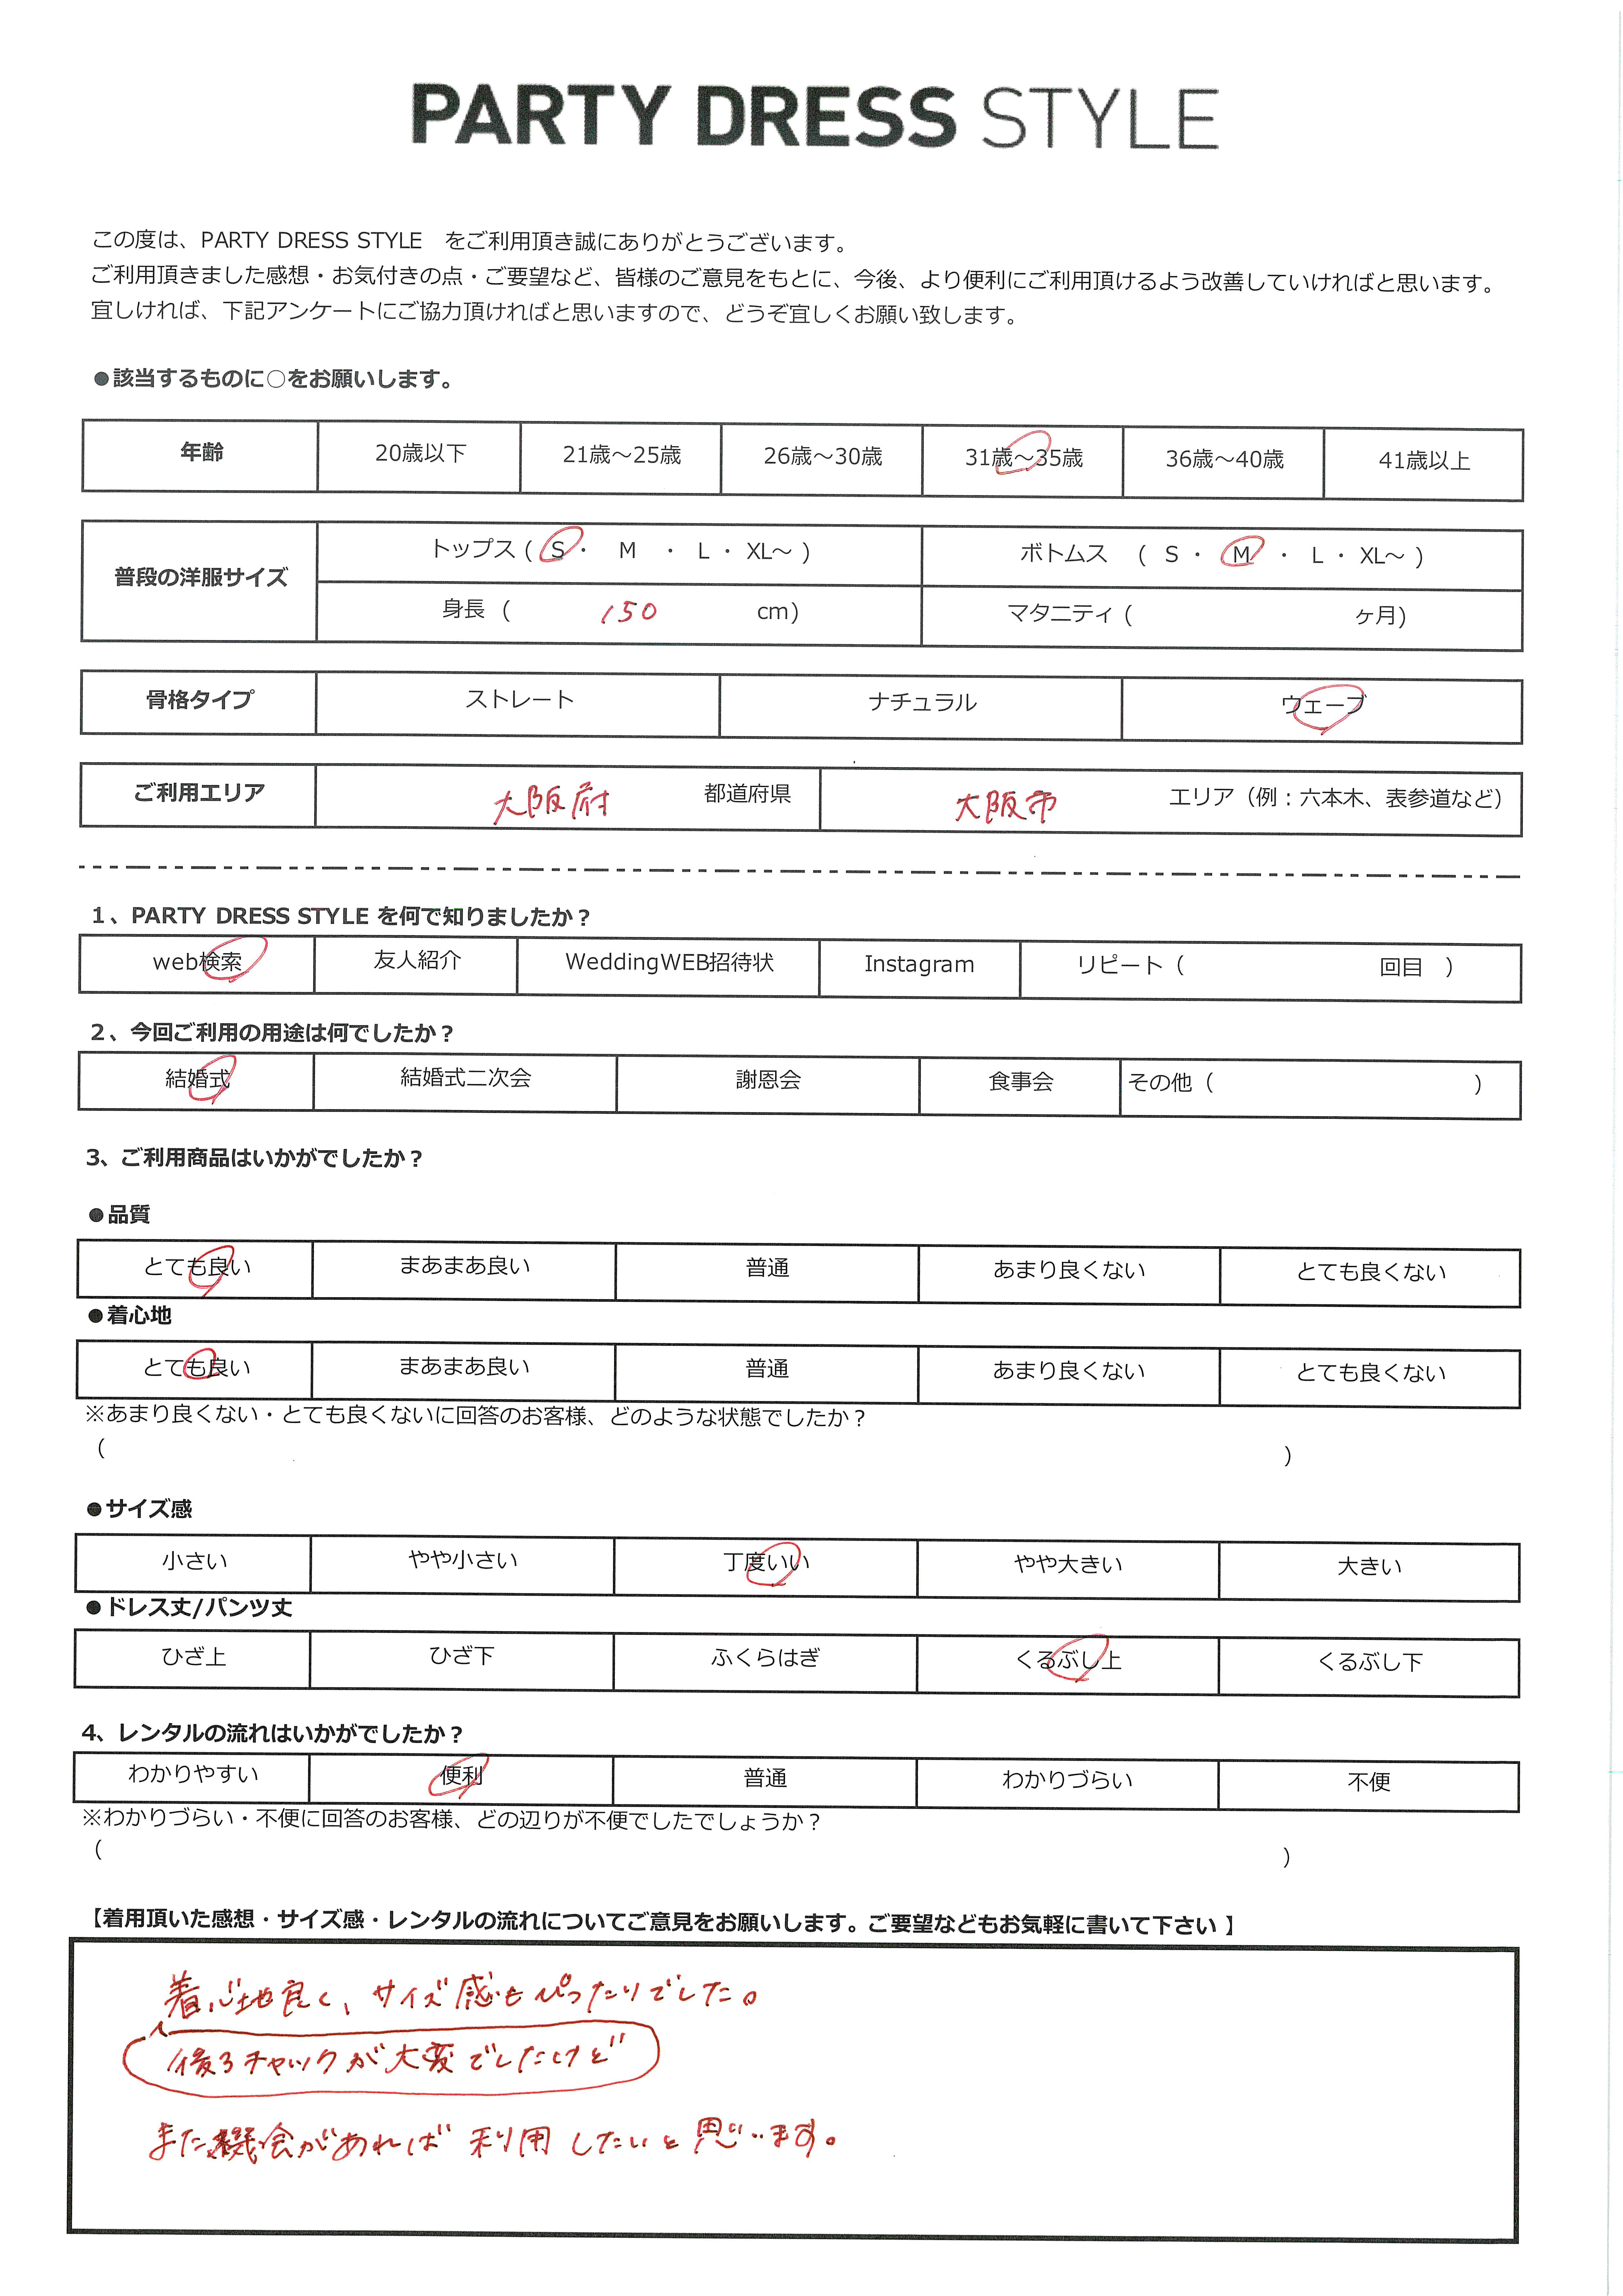 PARTY DRESS STYLE
この度は、PARTY DRESS STYLE　をご利用頂き誠にありがとうございます。
ご利用頂きました感想・お気付きの点・ご要望など、皆様のご意見をもとに、今後、より便利にご利用頂けるよう改善していければと思います。
宜しければ、下記アンケートにご協力頂ければと思いますので、どうぞ宜しくお願い致します。
●該当するものに○をお願いします。
年齢 20歳以下 21歳～25歳 26歳～30歳 31歳～35歳 36歳～40歳 41歳以上
普段の洋服サイズ トップス ( S ・ M ・ L ・ XL～ ) ボトムス ( S ・ M ・ L ・ XL～ )
身長 ( 150 cm) マタニティ ( ヶ月)
骨格タイプ ストレート ナチュラル ウェーブ
ご利用エリア 大阪府 都道府県 大阪市 エリア（例：六本木、表参道など）
1、PARTY DRESS STYLE を何で知りましたか？
web検索 友人紹介 WeddingWEB招待状 Instagram リピート（ 回目 ）
2、今回ご利用の用途は何でしたか？
結婚式 結婚式二次会 謝恩会 食事会 その他（ ）
3、ご利用商品はいかがでしたか？
●品質
とても良い まあまあ良い 普通 あまり良くない とても良くない
●着心地
とても良い まあまあ良い 普通 あまり良くない とても良くない
※あまり良くない・とても良くないに回答のお客様、どのような状態でしたか？
（ ）
●サイズ感
小さい やや小さい 丁度いい やや大きい 大きい
●ドレス丈/パンツ丈
ひざ上 ひざ下 ふくらはぎ くるぶし上 くるぶし下
4、レンタルの流れはいかがでしたか？
わかりやすい 便利 普通 わかりづらい 不便
※わかりづらい・不便に回答のお客様、どの辺りが不便でしたでしょうか？
（ ）
【着用頂いた感想・サイズ感・レンタルの流れについてご意見をお願いします。ご要望などもお気軽に書いて下さい 】
着心地良く、サイズ感もぴったりでした。
後ろチャックが大変でしたけど
また機会があれば利用したいと思います。